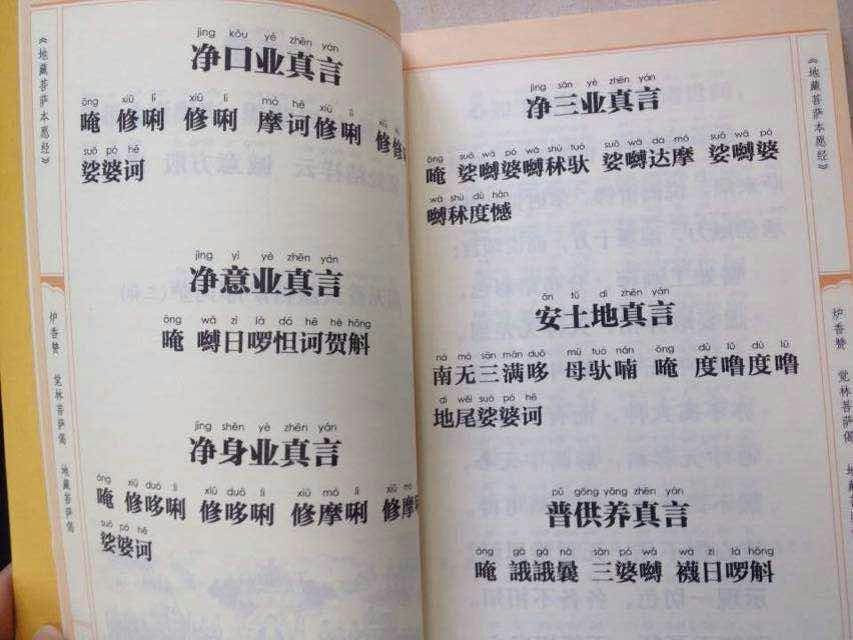 《地藏菩萨本愿经》
炉香赞 觉林菩萨偈 地藏菩萨偈
jìng kǒu yè zhēn yán
净口业真言
ōng xiū lì xiū lì mó hē xiū lì
唵 修唎 修唎 摩诃修唎 修修
suō pó hē
娑婆诃
jìng yì yè zhēn yán
净意业真言
ōng wā zī là dá hē hè hōng
唵 嚩日啰怛诃贺斛
jìng shēn yè zhēn yán
净身业真言
ōng xiū duō lì xiū duō lì xiū mó lì xiū mó
唵 修哆唎 修哆唎 修摩唎 修摩
suō pó hē
娑婆诃
jìng sān yè zhēn yán
净三业真言
ōng suō wā pó wā shù tuó suō wā dá mó suō wā pó
唵 娑嚩婆嚩秫驮 娑嚩达摩 娑嚩婆
wā shù dù hàn
嚩秫度憾
ān tǔ dì zhēn yán
安土地真言
ná mó sān mǎn duō mǔ tuó nán ōng dù lǔ dù lǔ
南无三满哆 母驮喃 唵 度噜度噜
dì wěi suō pó hē
地尾娑婆诃
pǔ gòng yǎng zhēn yán
普供养真言
ōng gā gā nà sān pó wā wà zī là hōng
唵 誐誐曩 三婆嚩 襪日啰斛
《地藏菩萨本愿经》
炉香赞 觉林菩萨偈